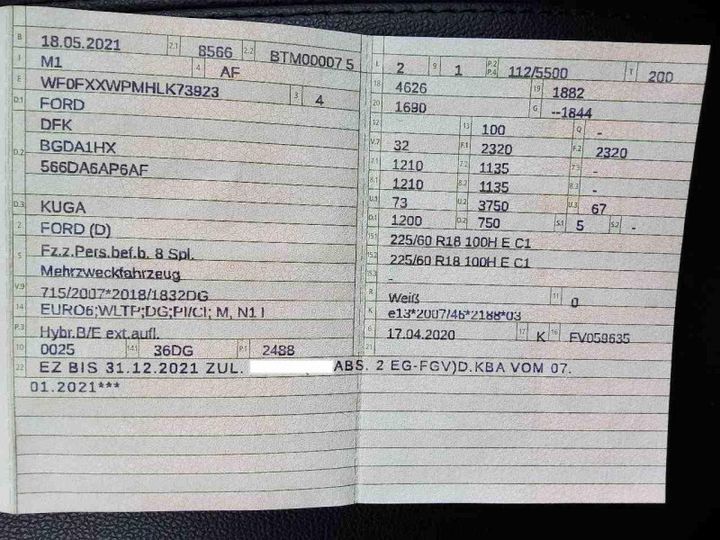 B 18.05.2021 2.1 8566 2.2 BTM00007 5
J M1 4 AF
E WF0FXXWPMHLK73923 3 4
D.1 FORD
DFK
D.2 BGDA1HX
566DA6AP6AF
D.3 KUGA
2 FORD (D)
5 Fz.z.Pers.bef.b. 8 Spl.
Mehrzweckfahrzeug
V.9 715/2007*2018/1832DG
14 EURO6;WLTP;DG;PI/CI; M, N1 I
P.3 Hybr.B/E ext.aufl.
10 0025 14.1 36DG P.1 2488
22 EZ BIS 31.12.2021 ZUL. ABS. 2 EG-FGV)D.KBA VOM 07.
01.2021***
L 2 9 1 P.2 P.4 112/5500 T 200
18 4626 19 1882
20 1690 G --1844
12 13 100 Q -
V.7 32 F.1 2320 F.2 2320
7.1 1210 7.2 1135 7.3 -
8.1 1210 8.2 1135 8.3 -
U.1 73 U.2 3750 U.3 67
O.1 1200 O.2 750 S.1 5 S.2 -
15.1 225/60 R18 100H E C1
15.2 225/60 R18 100H E C1
15.3 -
R Weiß 11 0
K e13*2007/46*2188*03
6 17.04.2020 17 K 16 FV059635
21